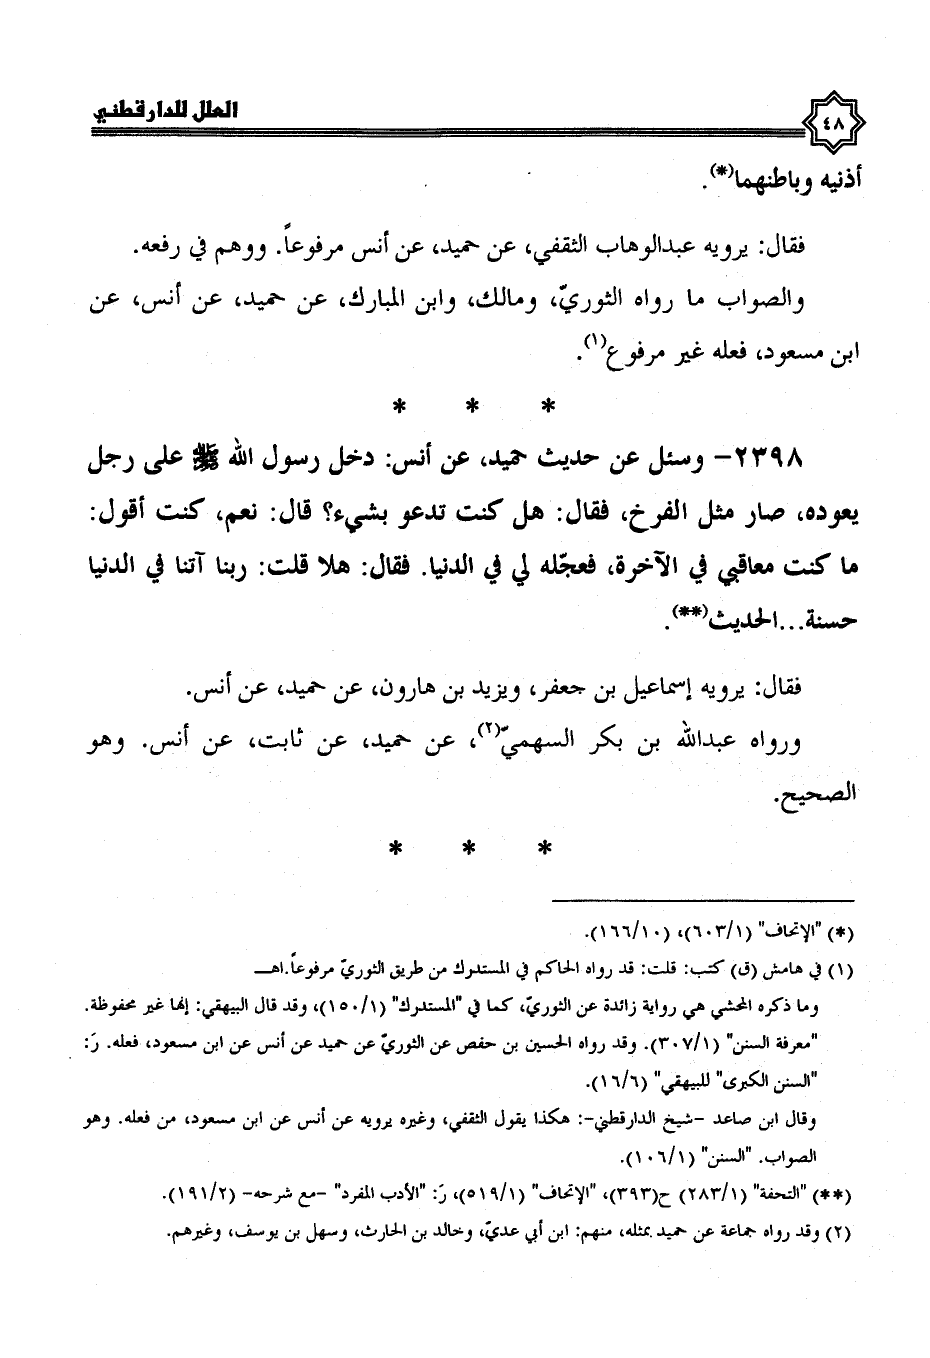 العلل للدارقطني
٤٨
أذنيه وباطنهما(*).
فقال: يرويه عبدالوهاب الثقفي، عن حميد، عن أنس مرفوعاً. ووهم في رفعه.
والصواب ما رواه الثوريّ، ومالك، وابن المبارك، عن حميد، عن أنس، عن
ابن مسعود، فعله غير مرفوع(١).
* * *
٢٣٩٨- وسئل عن حديث حميد، عن أنس: دخل رسول الله ﷺ على رجل
يعوده، صار مثل الفرخ، فقال: هل كنت تدعو بشيء؟ قال: نعم، كنت أقول:
ما كنت معاقبي في الآخرة، فعجّله لي في الدنيا. فقال: هلا قلت: ربنا آتنا في الدنيا
حسنة...الحديث(**).
فقال: يرويه إسماعيل بن جعفر، ويزيد بن هارون، عن حميد، عن أنس.
ورواه عبدالله بن بكر السهميّ(٢)، عن حميد، عن ثابت، عن أنس. وهو
الصحيح.
* * *
(*) "الإتحاف" (٦٠٣/١)، (١٦٦/١٠).
(١) في هامش (ق) كتب: قلت: قد رواه الحاكم في المستدرك من طريق الثوريّ مرفوعاً.اهــ
وما ذكره المحشي هي رواية زائدة عن الثوريّ، كما في "المستدرك" (١٥٠/١)، وقد قال البيهقي: إنها غير محفوظة.
"معرفة السنن" (٣٠٧/١). وقد رواه الحسين بن حفص عن الثوريّ عن حميد عن أنس عن ابن مسعود، فعله. رَ:
"السنن الكبرى" للبيهقي" (١٦/٦).
وقال ابن صاعد -شيخ الدارقطني-: هكذا يقول الثقفي، وغيره يرويه عن أنس عن ابن مسعود، من فعله. وهو
الصواب. "السنن" (١٠٦/١).
(**) "التحفة" (٢٨٣/١) ح(٣٩٣)، "الإتحاف" (٥١٩/١)، رَ: "الأدب المفرد" -مع شرحه- (١٩١/٢).
(٢) وقد رواه جماعة عن حميد بمثله، منهم: ابن أبي عديّ، وخالد بن الحارث، وسهل بن يوسف، وغيرهم.